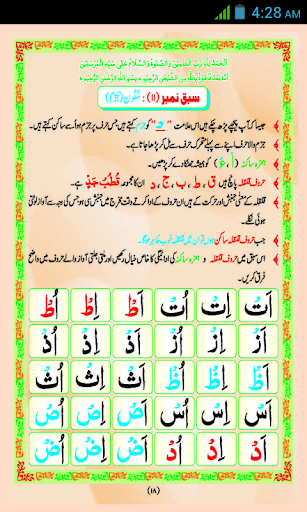 4:28 AM
اَلْحَمْدُ لِلّٰهِ رَبِّ الْعٰلَمِیْنَ وَالصَّلٰوةُ وَالسَّلَامُ عَلٰی سَیِّدِ الْمُرْسَلِیْنَ
اَمَّا بَعْدُ فَاَعُوْذُ بِاللّٰهِ مِنَ الشَّیْطٰنِ الرَّجِیْمِ بِسْمِ اللّٰهِ الرَّحْمٰنِ الرَّحِیْمِ
سبق نمبر (۱۱) : سُکُون (جَزْم)
جیسا کہ آپ پیچھے پڑھ چکے ہیں اس علامت " ْ " کو جزم کہتے ہیں جس حرف پر جزم ہو اُسے ساکن کہتے ہیں۔
جزم والا حرف اپنے سے پہلے متحرک حرف سے مل کر پڑھا جاتا ہے۔
ہمزہ ساکنہ (أْ ، ءْ) کو ہمیشہ جھٹکا دے کر پڑھیں۔
حروف قلقلہ پانچ ہیں ق ، ط ، ب ، ج ، د ان کا مجموعہ قُطْبُ جَدٍّ ہے۔
قلقلہ کے معنی جنبش اور حرکت کے ہیں ان حروف کے ادا کرتے وقت مخرج میں جنبش سی ہو جس کی وجہ سے آواز لوٹتی
ہوئی نکلے۔
جب حروف قلقلہ ساکن ہوں تو ان میں قلقلہ خوب ظاہر ہوگا۔
اس سبق میں حروف قلقلہ و ہمزہ ساکنہ کی ادائیگی کا خاص خیال رکھیں اور ملتی جلتی آواز والے حروف میں واضح
فرق کریں۔
اَتْ اِتْ اُتْ اَطْ اِطْ اُطْ
اَزْ اِزْ اُزْ اَذْ اِذْ اُذْ
اَظْ اِظْ اُظْ اَثْ اِثْ اُثْ
اَسْ اِسْ اُسْ اَصْ اِصْ اُصْ
اَدْ اِدْ اُدْ اَضْ اِضْ اُضْ
(۱۸)